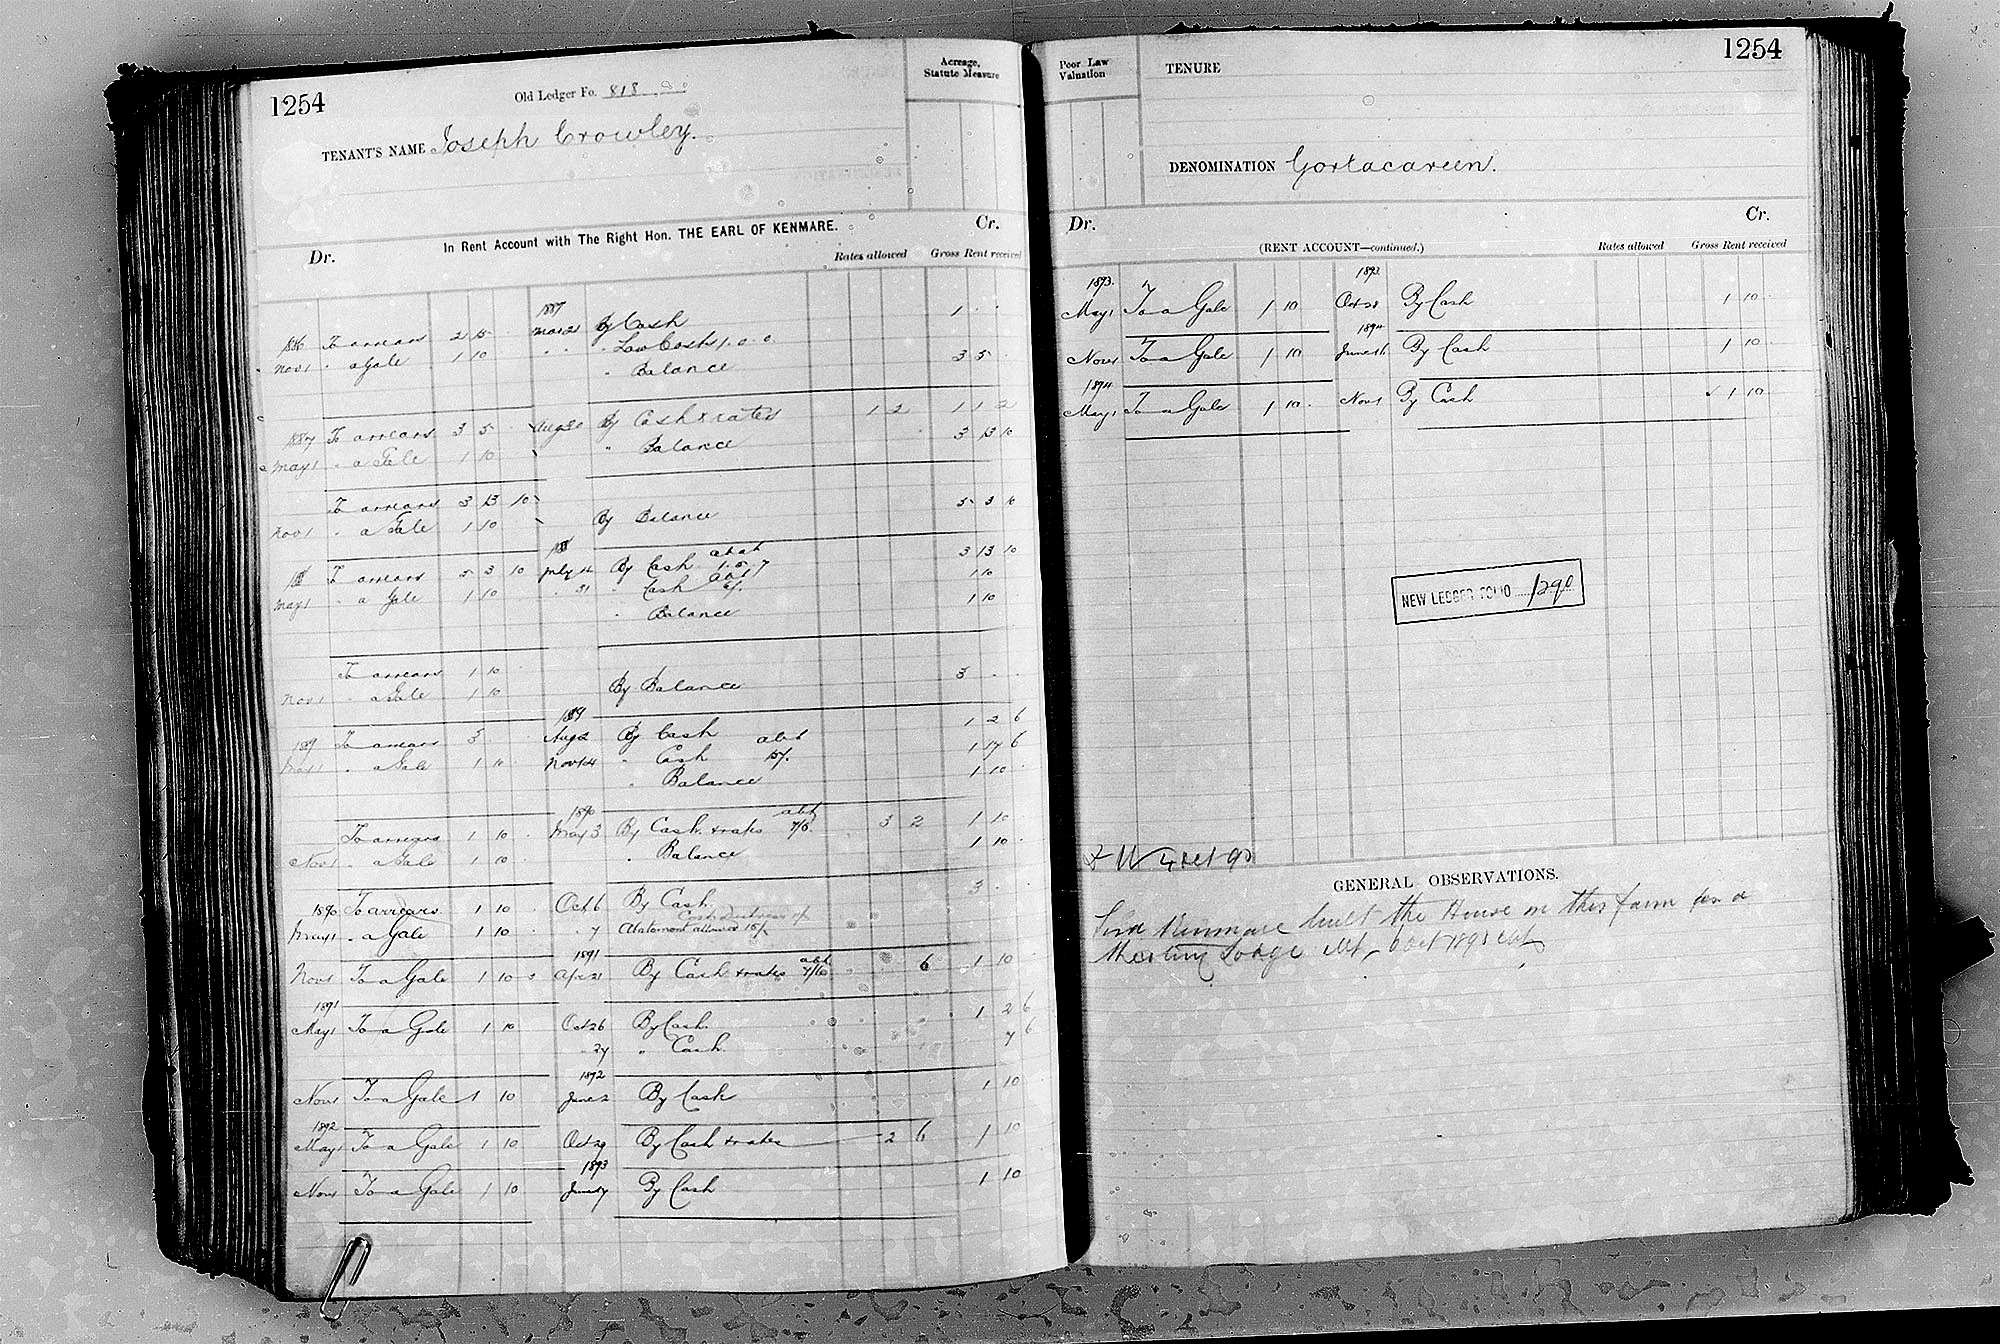 1254
Old Ledger Fo. 818
Acreage,
Statute Measure
TENANT'S NAME Joseph Crowley.
In Rent Account with The Right Hon. THE EARL OF KENMARE.
Dr. Cr.
Rates allowed Gross Rent received
1887
1886 To arrears 2 15 Mar 21 By Cash 1 . .
Nov 1 " a Gale 1 10 " " " Law Costs 1. 0. 0
" Balance 3 5 .
1887 To arrears 3 5 Aug 30 By Cash & rates 1 2 1 1 2
May 1 " a Gale 1 10 " Balance 3 13 10
To arrears 3 13 10
Nov 1 " a Gale 1 10 By Balance 5 3 10
To arrears 5 3 10 July By Cash abat 3 13 10
May 1 " a Gale 1 10 " 31 " Cash 1 10
" Balance 1 10
To arrears 1 10
Nov 1 " a Gale 1 10 By Balance 3 . .
1889
1889 To arrears 3 Aug 2 By Cash 1 2 6
May 1 " a Gale 1 10 Nov 14 " Cash abat 1 17 6
" Balance 1 10
1890
To arrears 1 10 May 3 By Cash & rates abt 7/6 3 2 1 10
Nov 1 " a Gale 1 10 " Balance 1 10
1890 To arrears 1 10 Oct 6 By Cash 3 . .
May 1 " a Gale 1 10 " 7 Abatement allowed 15/
1891
Nov 1 To a Gale 1 10 Apr 21 By Cash & rates abt 7/6 6 1 10
1891
May 1 To a Gale 1 10 Oct 26 By Cash 1 2 6
" 27 " Cash 7 6
1892
Nov 1 To a Gale 1 10 June 2 By Cash 1 10
1892
May 1 To a Gale 1 10 Oct 29 By Cash & rates 2 6 1 10
1893
Nov 1 To a Gale 1 10 June 7 By Cash 1 10
1254
Poor Law
Valuation
TENURE
DENOMINATION Gortacareen.
Dr. Cr.
(RENT ACCOUNT—continued.) Rates allowed Gross Rent received
1893. 1893
May 1 To a Gale 1 10 Oct 28 By Cash 1 10
1894
Nov 1 To a Gale 1 10 June 16 By Cash 1 10
1894
May 1 To a Gale 1 10 Nov 1 By Cash 1 10
NEW LEDGER FOLIO 1290
GENERAL OBSERVATIONS.
Lord Kenmare built the House on this farm for a
Lodge Oct 1891